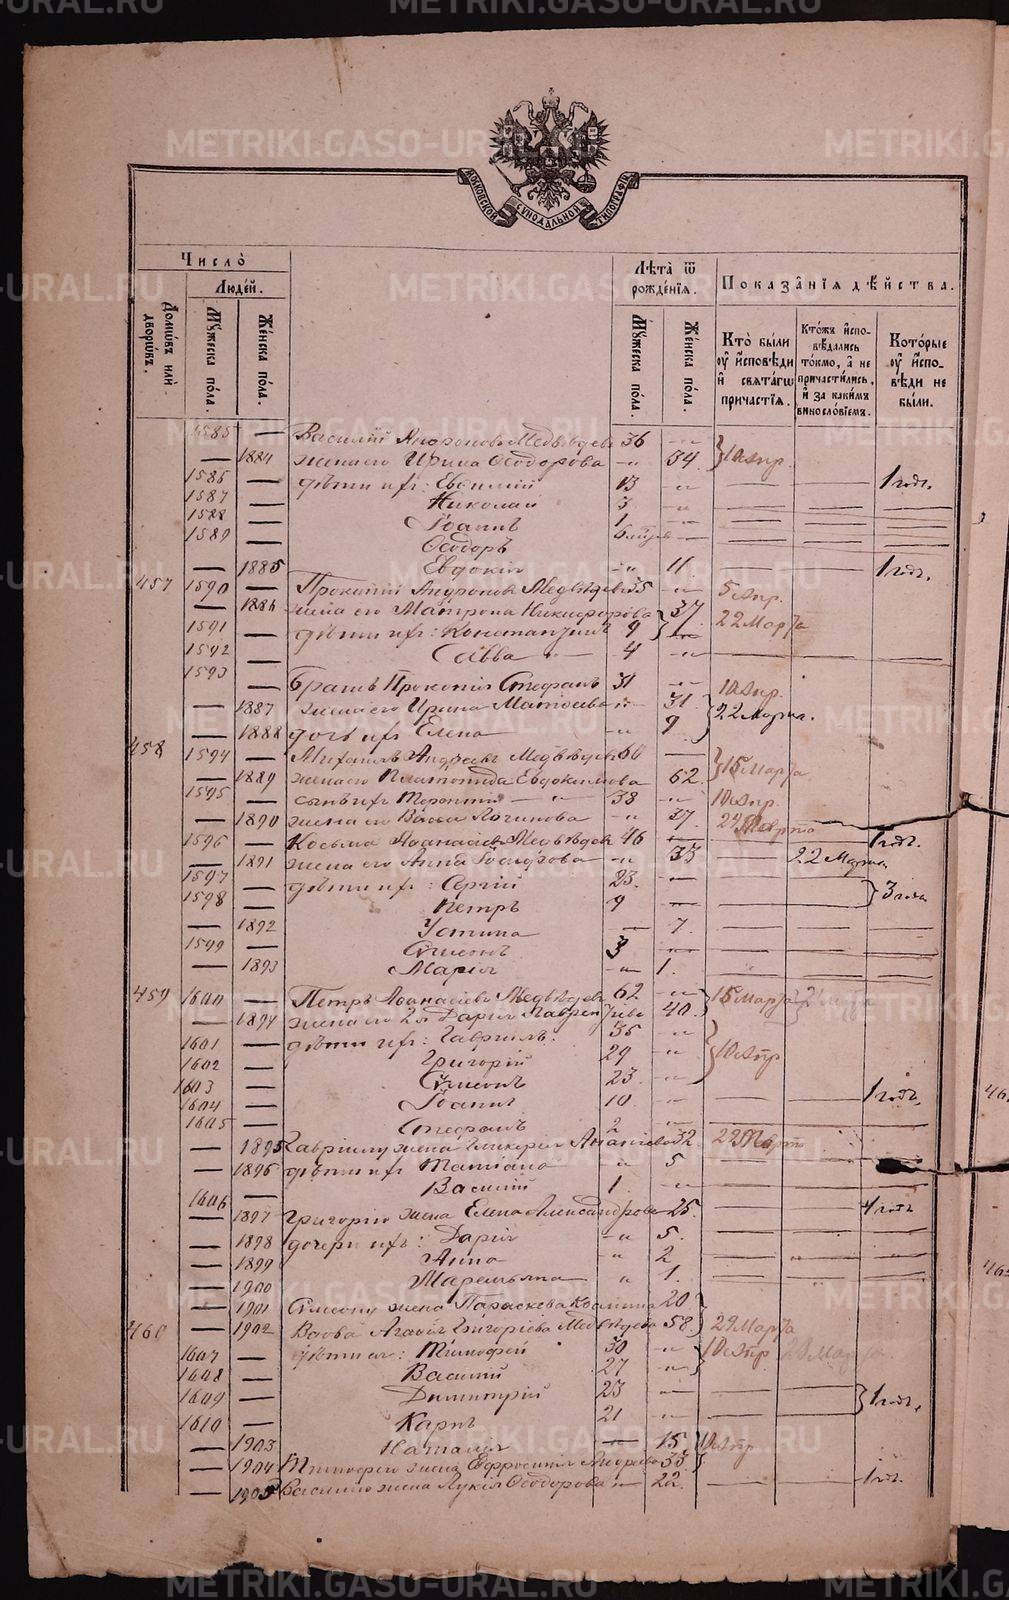 МОСКОВСКОЙ СѴНОДАЛЬНОЙ ТИПОГРАФІИ
Число̀
Люде́й.
Домѡ́въ илѝ дворѡ́въ.
Мꙋ́жеска по́ла.
Же́нска по́ла.
Лѣ́та ѿ рожде́нїѧ.
Мꙋ́жеска по́ла.
Же́нска по́ла.
Показа́нїѧ дѣ́йства.
Кто̀ бы́ли ᲂу҆ и҆сповѣди и҆ свѧта́гѡ прича́стїѧ.
Кто́жъ и҆сповѣдались то́кмо, а҆ не причасти́лись, и҆ за каки́мъ винословїемъ.
Кото́рые ᲂу҆ и҆сповѣди не бы́ли.
1585 — Василій Андроновъ Медвѣдевъ 36
— 1884 жена его Ирина Ѳеодорова 34 10 Апр.
1586 — дѣти ихъ: Евѳимій 13 1 годъ.
1587 — Николай 3
1588 — Іоаннъ 1
1589 — Ѳеодоръ
— 1885 Евдокія 11 1 годъ.
457 1590 — Прокопій Андроновъ Медвѣдевъ 35 5 Апр.
— 1886 жена его Матрона Никифорова 37 22 Марта
1591 — дѣти ихъ: Константинъ 9
1592 — Савва 4
1593 — братъ Прокопія Стефанъ 31 10 Апр.
— 1887 жена его Ирина Матѳеева 31 22 Марта.
— 1888 дочь ихъ Елена 9
458 1594 — Михаилъ Андреевъ Медвѣдевъ 60 15 Марта
— 1889 жена его Платонида Евдокимова 62
1595 — сынъ ихъ Терентій 38 10 Апр.
— 1890 жена его Васса Логинова 37 29 Марта
1596 — Косьма Аѳанасіевъ Медвѣдевъ 46 1 годъ.
— 1891 жена его Анна 33 22 Марта
1597 — дѣти ихъ: Сергій 23 3 года
1598 — Петръ 9
— 1892 Устина 7
1599 — Сѵмеонъ 3
— 1893 Марія 1.
459 1600 — Петръ Аѳанасіевъ Медвѣдевъ 62 15 Марта
— 1894 жена его 2я Дарія Лаврентіева 40
1601 — дѣти ихъ: Гавріилъ. 35 10 Апр
1602 — Григорій 29
1603 — Сѵмеонъ 23
1604 — Іоаннъ 10 1 годъ.
1605 — Стефанъ 2
— 1895 Гавріилу жена Гликерія 32 29 Марта
— 1896 дѣти ихъ Татіана 5
1606 — Василій 1
— 1897 Григорію жена Елена Александрова 25.
— 1898 дочери ихъ: Дарія 5.
— 1899 Анна 2
— 1900 Маремьяна 1.
— 1901 Сѵмеону жена Параскева 20
460 — 1902 Вдова Агаѳія Григоріева Медвѣдева 58 29 Марта
1607 — дѣти ея: Тимофей 30 10 Апр
1608 — Василій 27
1609 — Димитрій 23 1 годъ.
1610 — Карпъ 21
— 1903 Наталія 15 10 Апр
— 1904 Тимофею жена Ефросинія 33
— 1905 Василію жена Лукія Ѳеодорова 22. 1 годъ.
METRIKI.GASO-URAL.RU